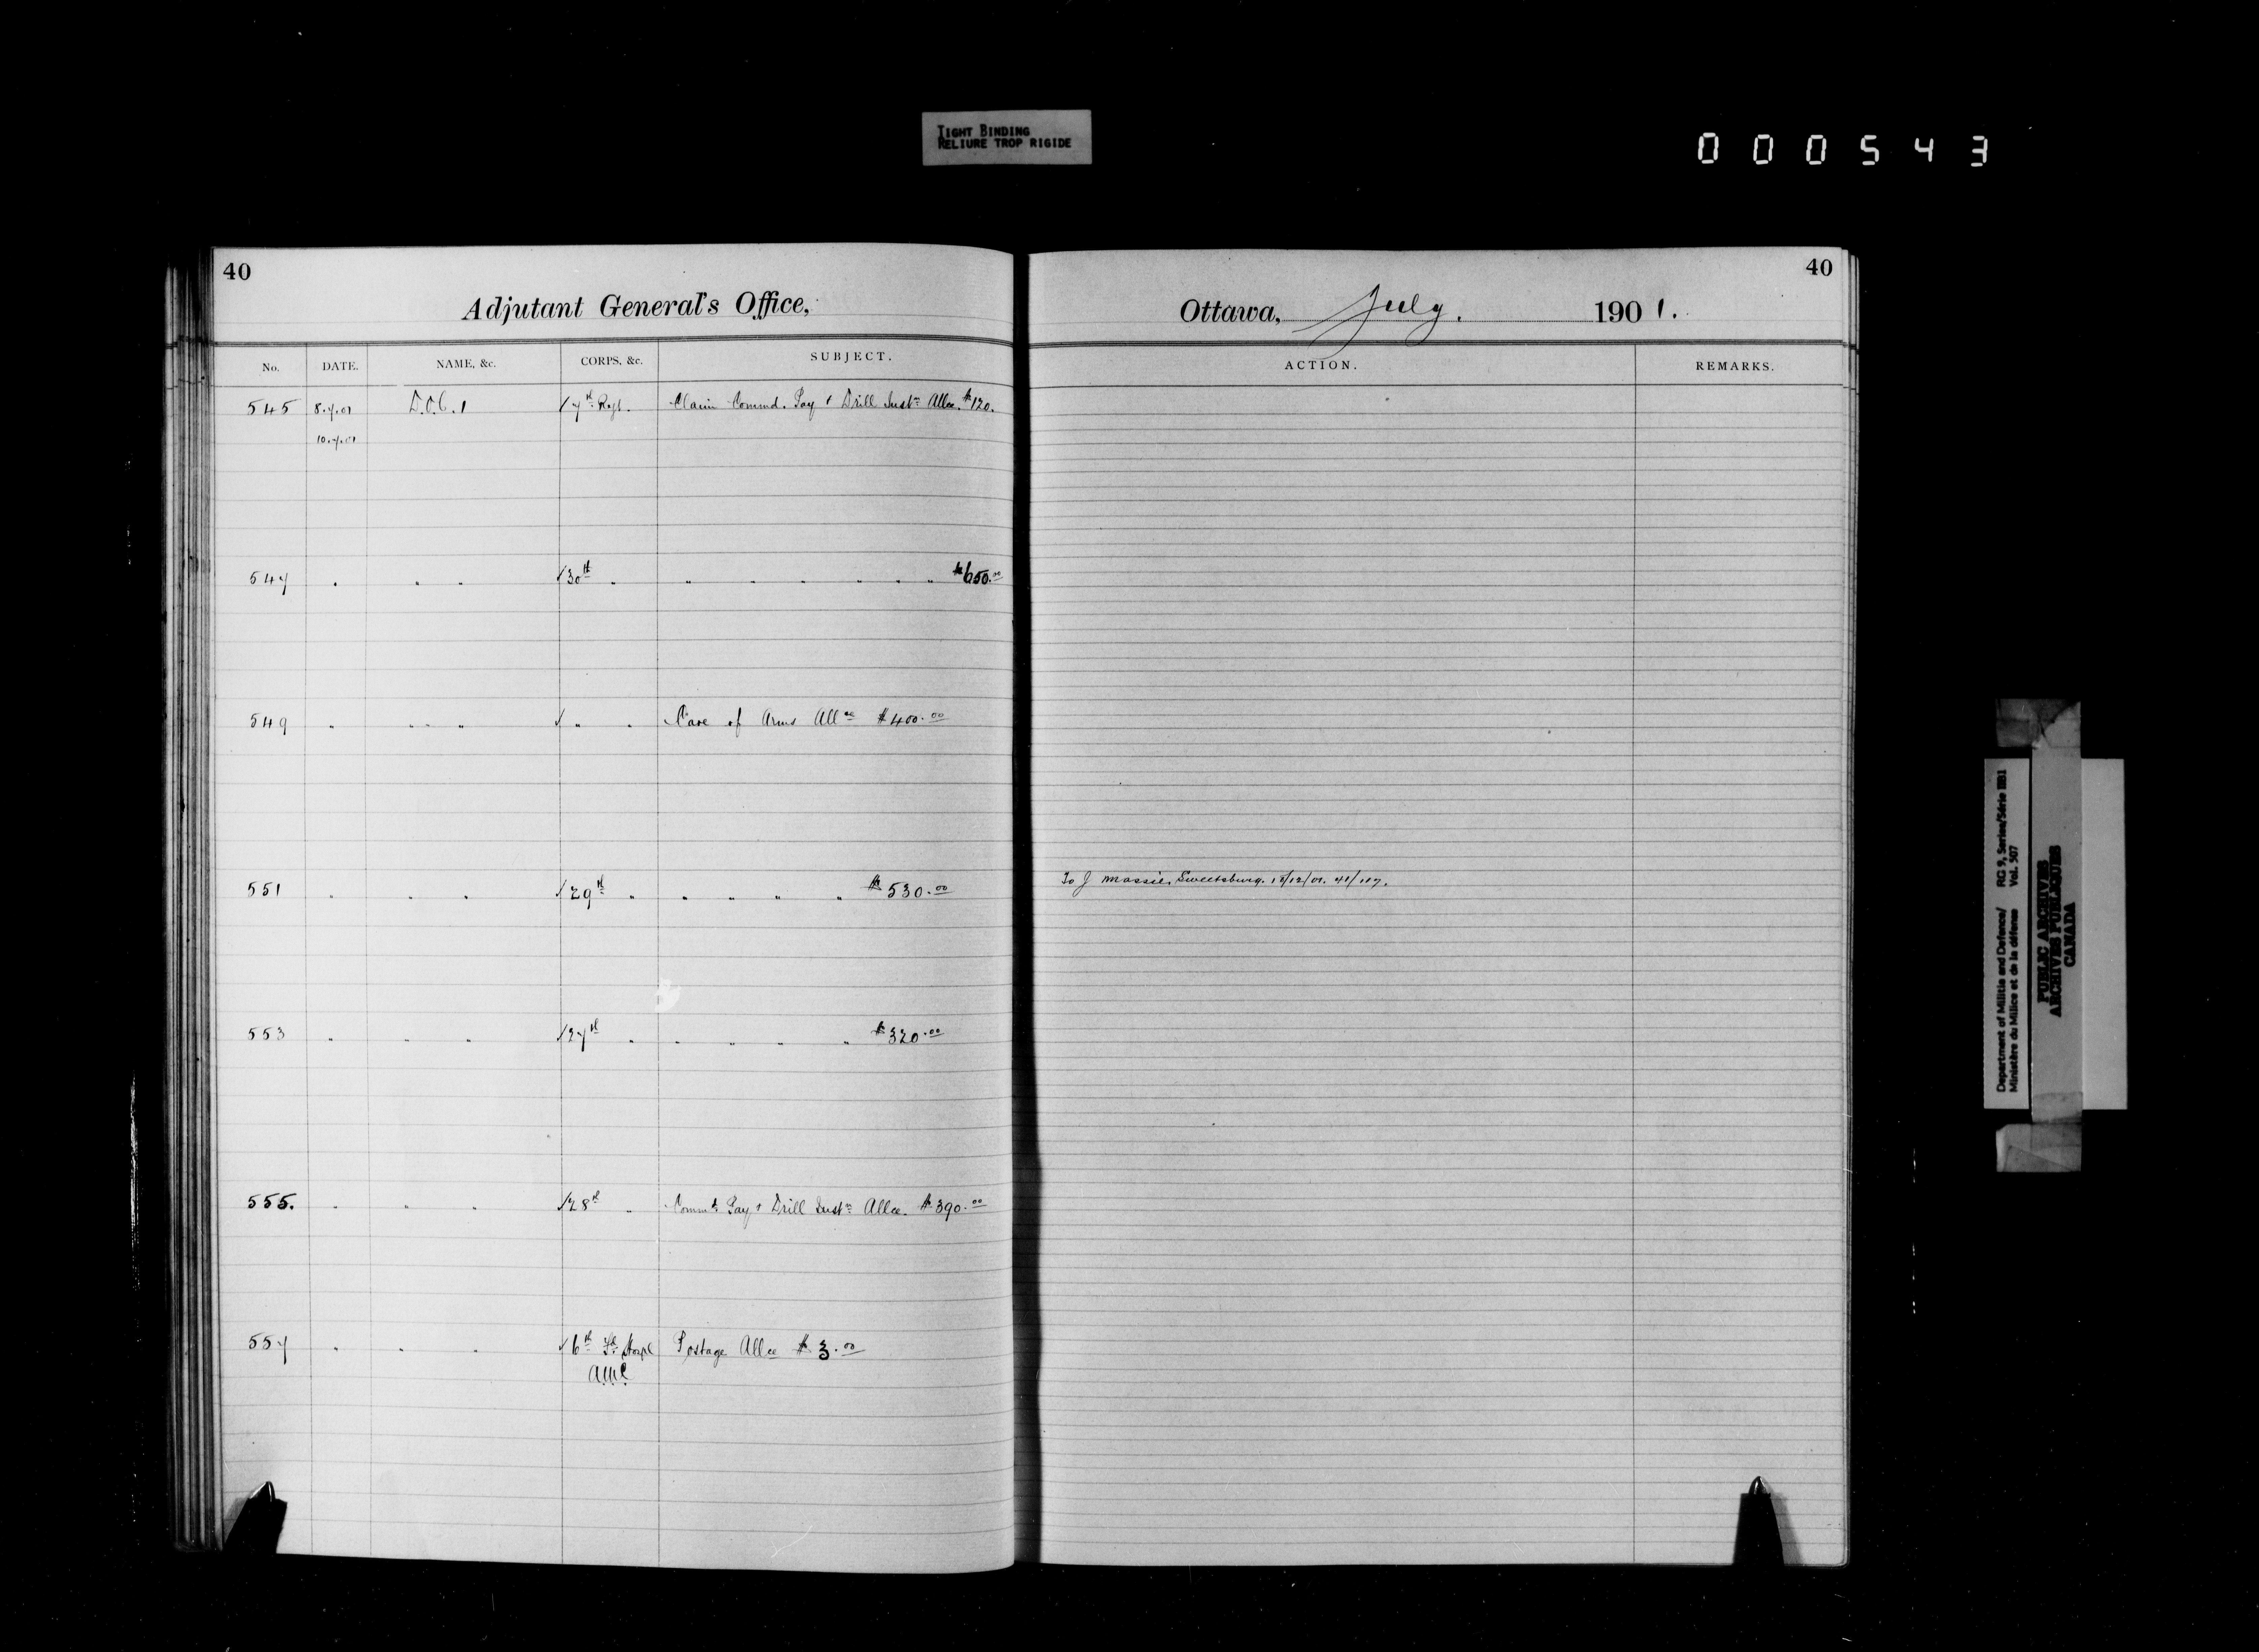 TIGHT BINDING
RELIURE TROP RIGIDE
000543
40
Adjutant General's Office,
No. DATE. NAME, &c. CORPS, &c. SUBJECT.
545 8.7.01 D.O.C. 1 √ 7th Regt. Claim Commd. Pay + Drill Instn Allce. $120.
10.7.01
547 " " " √ 30th " " " " " " " $650.00
549 " " " " √ " " Care of Arms Allce $400.00
551 " " " √ 29th " " " " " $530.00
553 " " " √ 27th " " " " " $320.00
555. " " " √ 28th " Commd. Pay + Drill Instn Allce. $390.00
557 " " " √ 6th Fd. Hospl Postage Allce $3.00
A.M.C.
40
Ottawa, July. 1901.
ACTION. REMARKS.
To J Massie, Sweetsburg. 41/117.
Department of Militia and Defence/ RG 9, Series/Série IIB1
Ministère du Milice et de la défense Vol. 507
PUBLIC ARCHIVES
ARCHIVES PUBLIQUES
CANADA